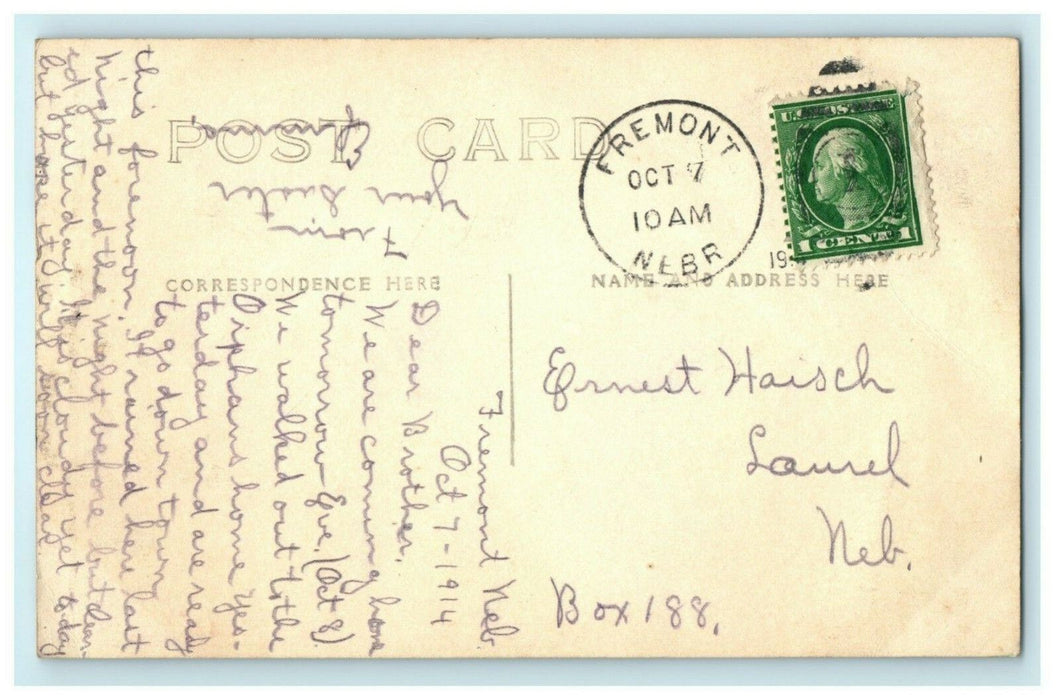 POST CARD
CORRESPONDENCE HERE
NAME AND ADDRESS HERE
FREMONT
OCT 7
10 AM
NEBR
19
Ernest Haisch
Laurel
Neb.
Box 188,
Fremont Neb.
Oct 7-1914
Dear Brother.
We are coming home
tomorrow Eve. (Oct 8)
We walked out to the
Orphans home yes-
terday and are ready
to go down town
this forenoon. It rained here last
night and the night before but clear-
ed yesterday. It is cloudy yet today
but hope it will soon clear
From
your Sister